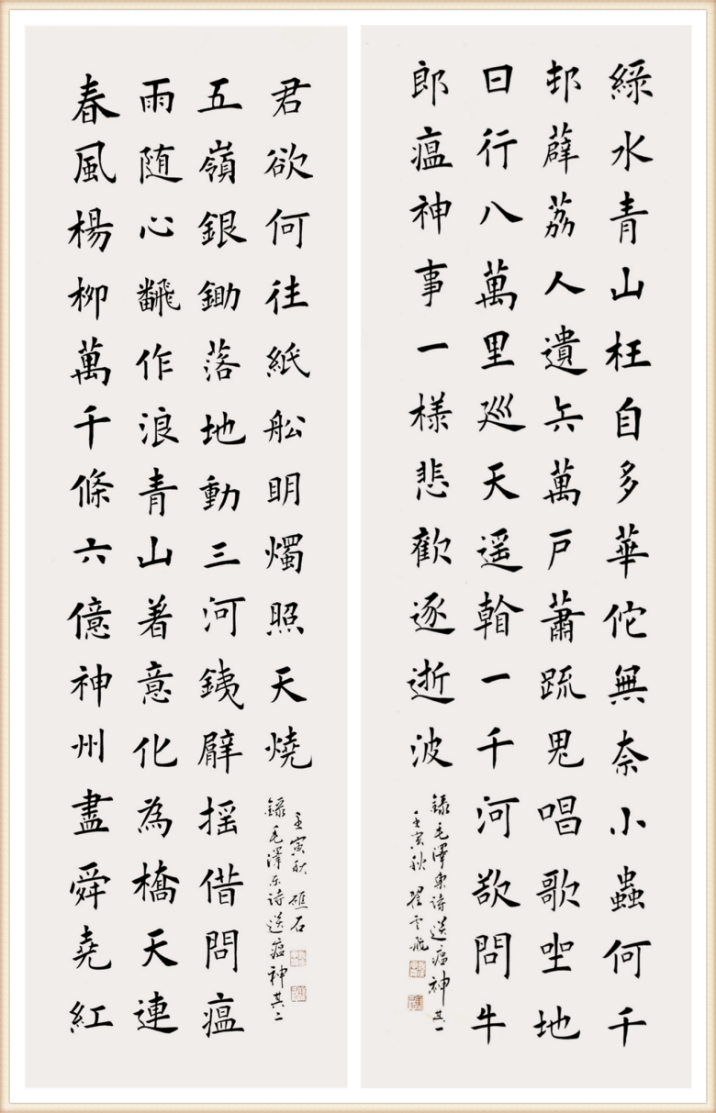 綠水青山枉自多華佗無奈小蟲何千
邨薜荔人遺矢萬戶蕭疏鬼唱歌坐地
日行八萬里巡天遥看一千河欲問牛
郎瘟神事一樣悲歡逐逝波
錄毛澤東诗送瘟神其一
壬寅秋 翟云飛
春風楊柳萬千條六億神州盡舜堯紅
雨随心飜作浪青山着意化為橋天連
五嶺銀鋤落地動三河銕臂摇借問瘟
君欲何往紙舩明燭照天燒
錄毛澤东诗送瘟神其二
壬寅秋 礁石